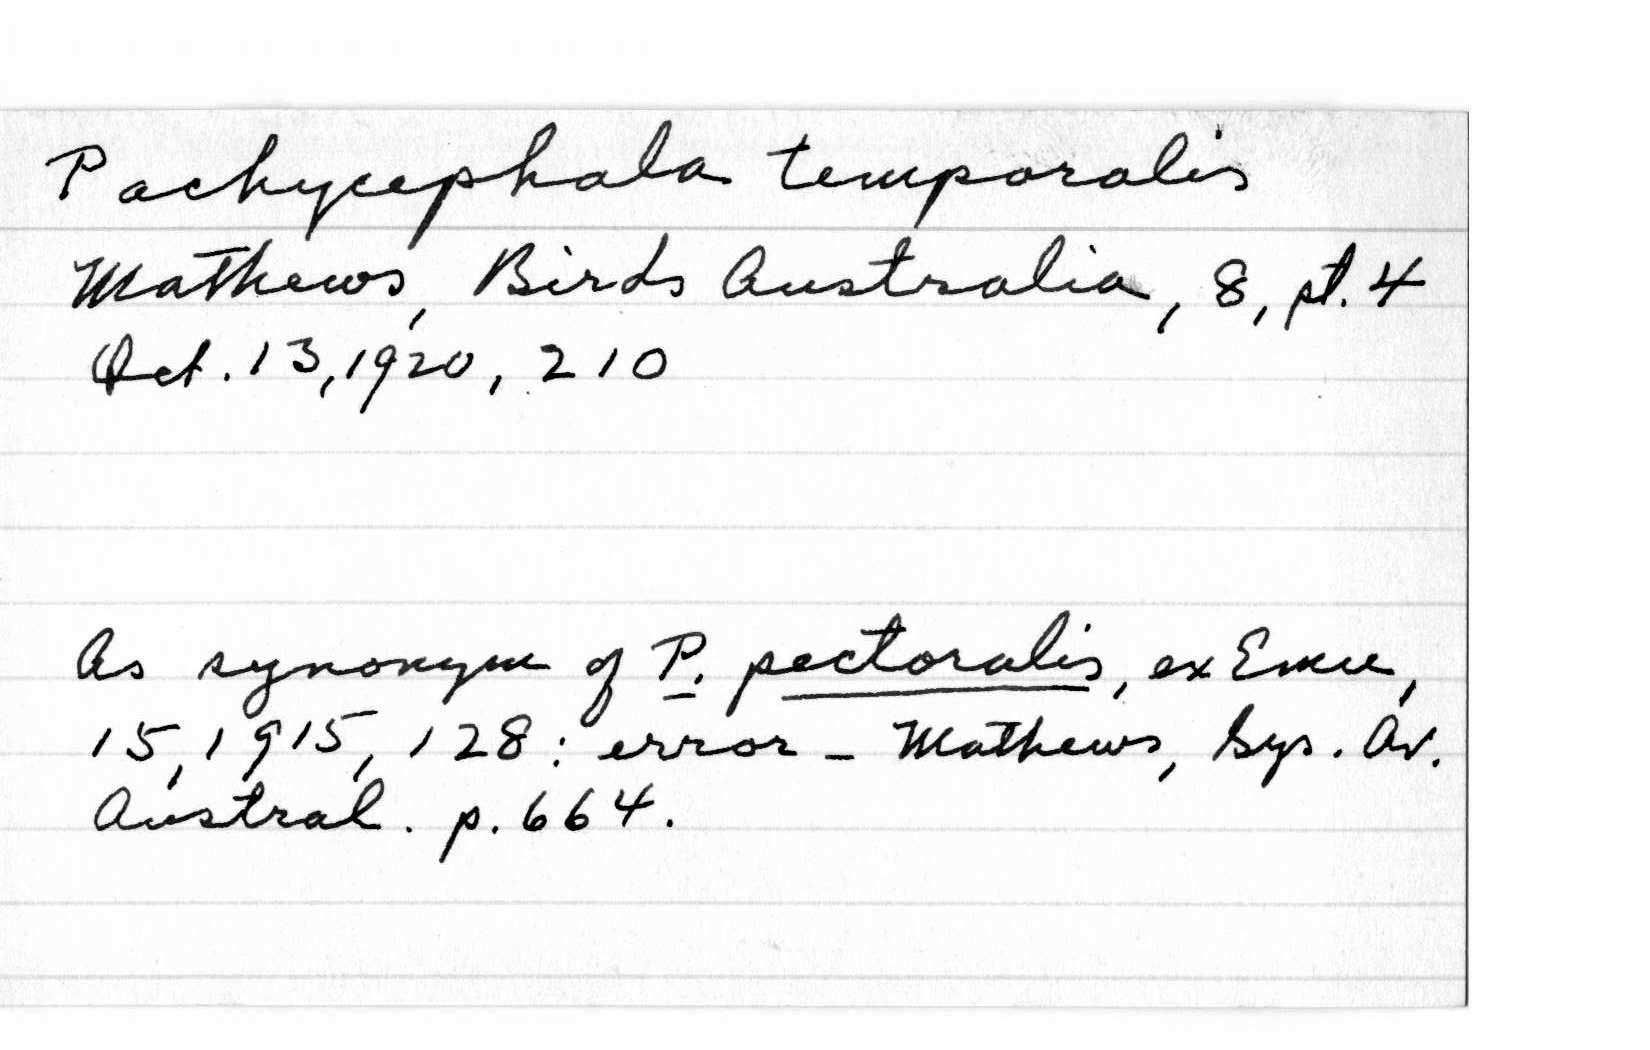 Pachycephala temporalis
Mathews, Birds Australia, 8, pt. 4
Oct. 13, 1920, 210
As synonym of P. pectoralis, ex Emu,
15, 1915, 128: error - Mathews, Sys. Av.
Austral. p. 664.